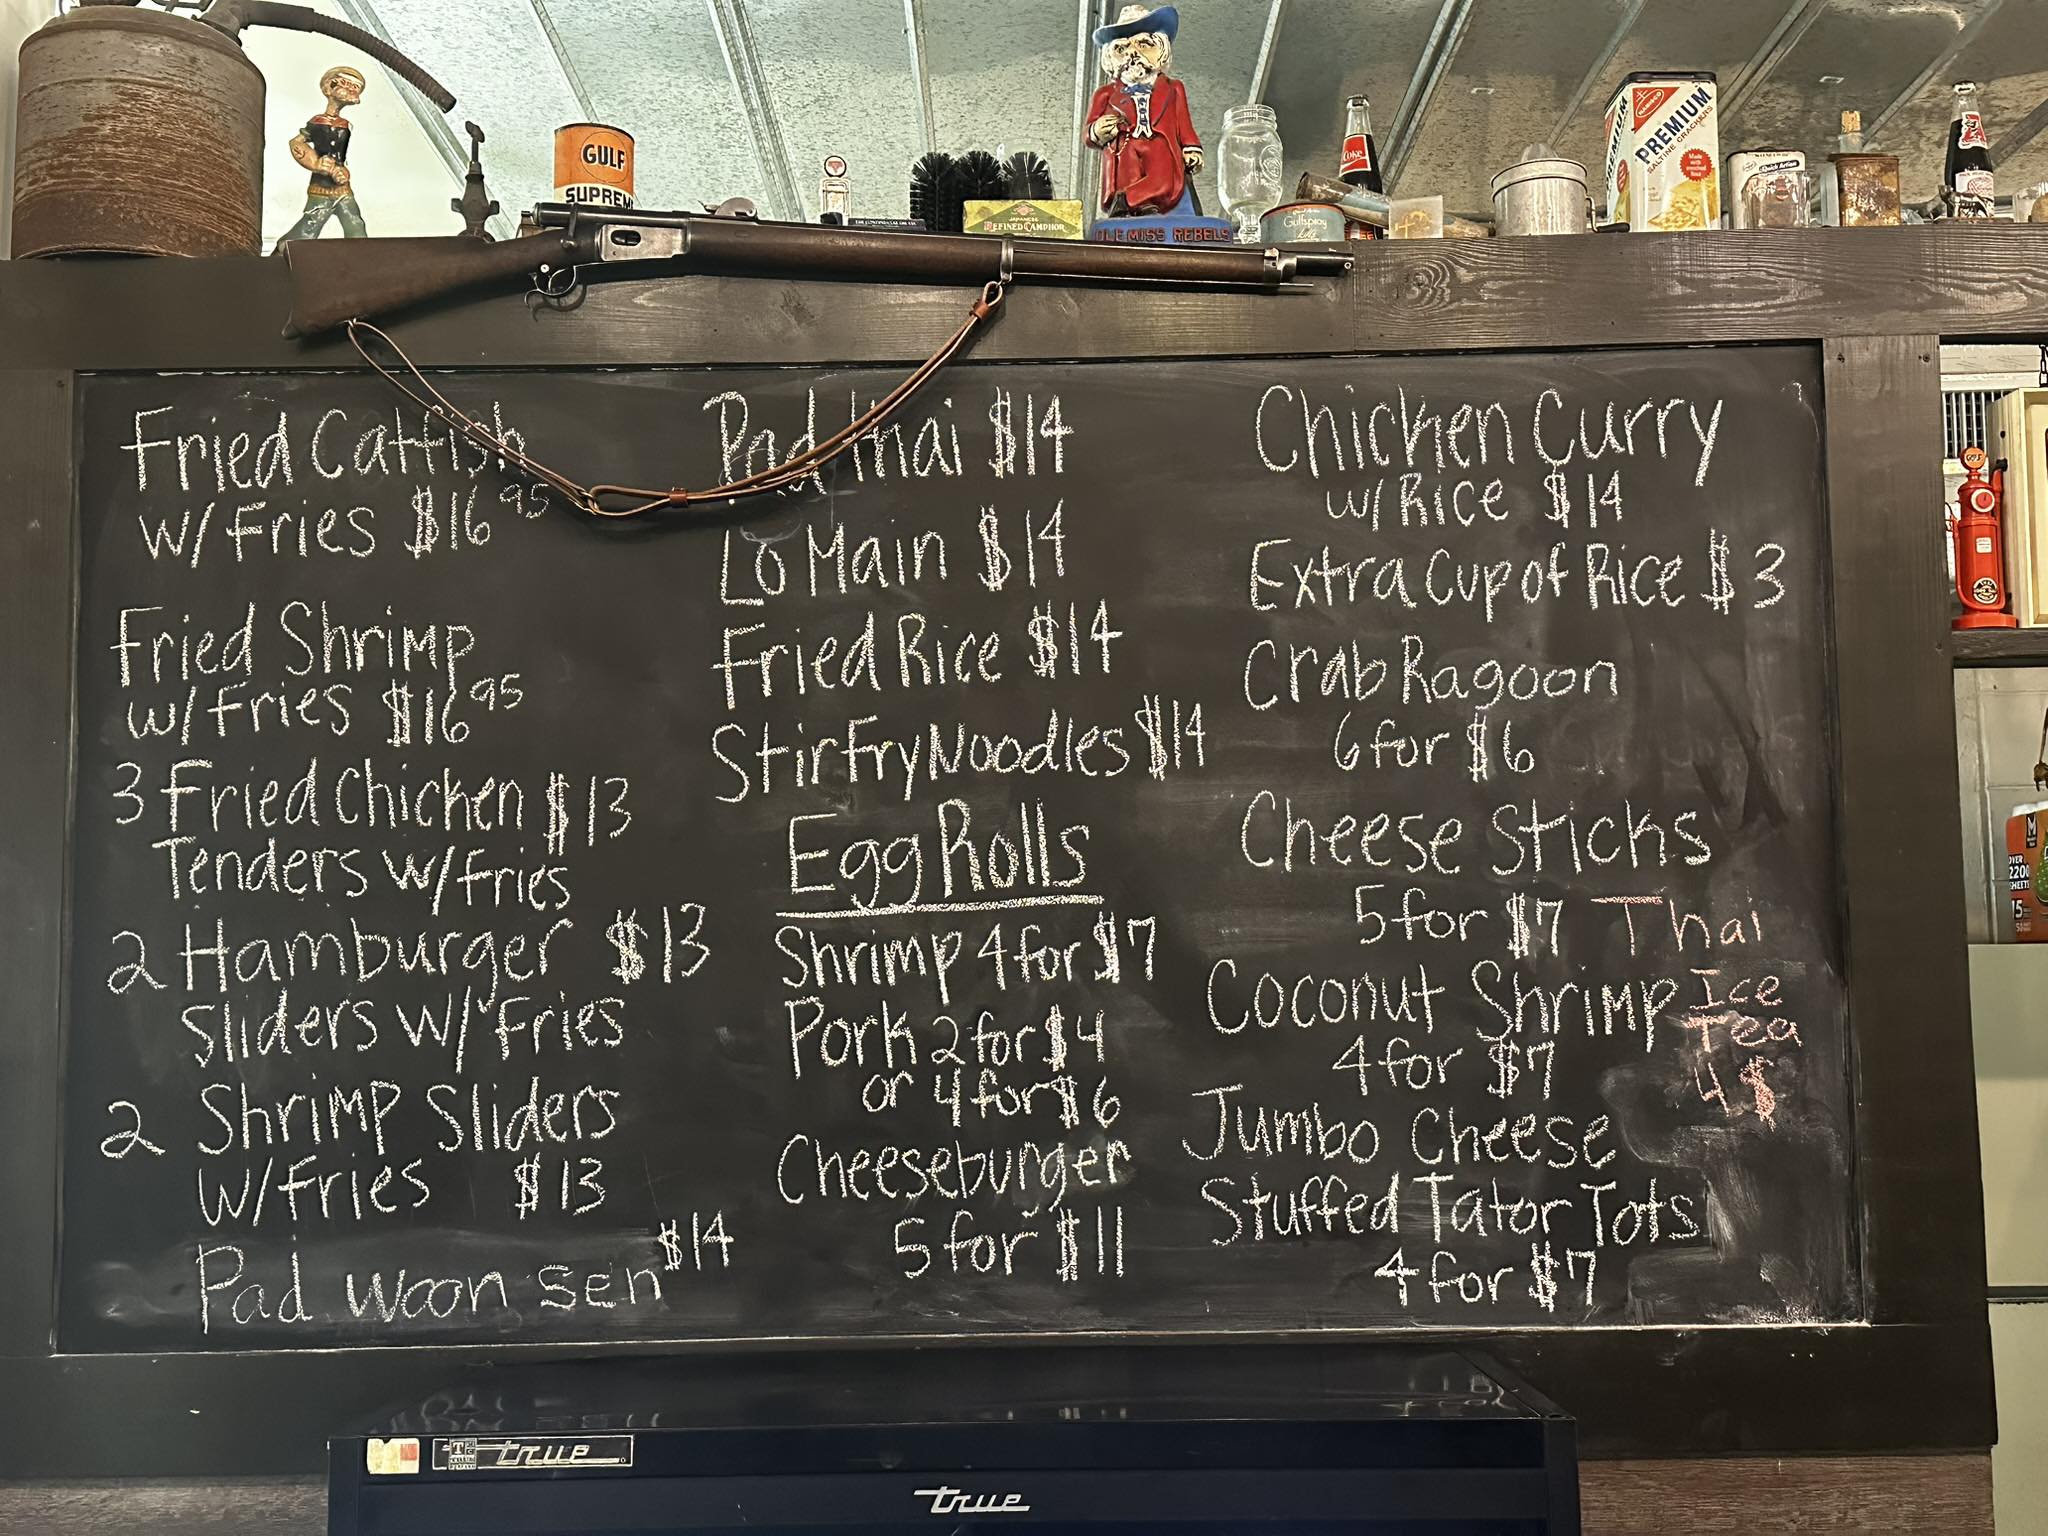 GULF
SUPREME
JAPANESE
REFINED CAMPHOR
OLE MISS REBELS
Gulfspray
Coke
NABISCO
PREMIUM
SALTINE CRACKERS
PREMIUM
Fried Catfish
w/Fries $16 95
Fried Shrimp
w/Fries $16 95
3 Fried Chicken $13
Tenders w/Fries
2 Hamburger $13
Sliders w/Fries
2 Shrimp Sliders
w/Fries $13
Pad woon sen $14
Pad thai $14
Lo Main $14
Fried Rice $14
Stir Fry Noodles $14
Egg Rolls
Shrimp 4 for $7
Pork 2 for $4
or 4 for $6
Cheeseburger
5 for $11
Chicken Curry
w/ Rice $14
Extra Cup of Rice $3
Crab Ragoon
6 for $6
Cheese Sticks
5 for $7
Coconut Shrimp
4 for $7
Jumbo Cheese
Stuffed Tator Tots
4 for $7
Thai
Ice
Tea
4 $
OVER
2200
SHEETS
15
true
true